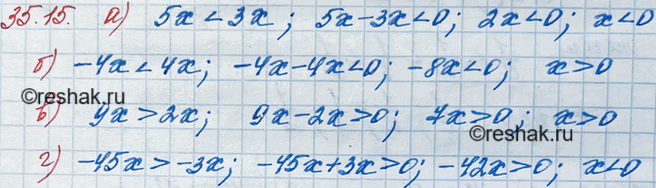 35.15. а) 5x < 3x; 5x-3x<0; 2x<0; x<0
б) -4x < 4x; -4x-4x<0; -8x<0; x>0
©reshak.ru ©reshak.ru
в) 9x > 2x; 9x-2x>0; 7x>0; x>0
г) -45x > -3x; -45x+3x>0; -42x>0; x<0